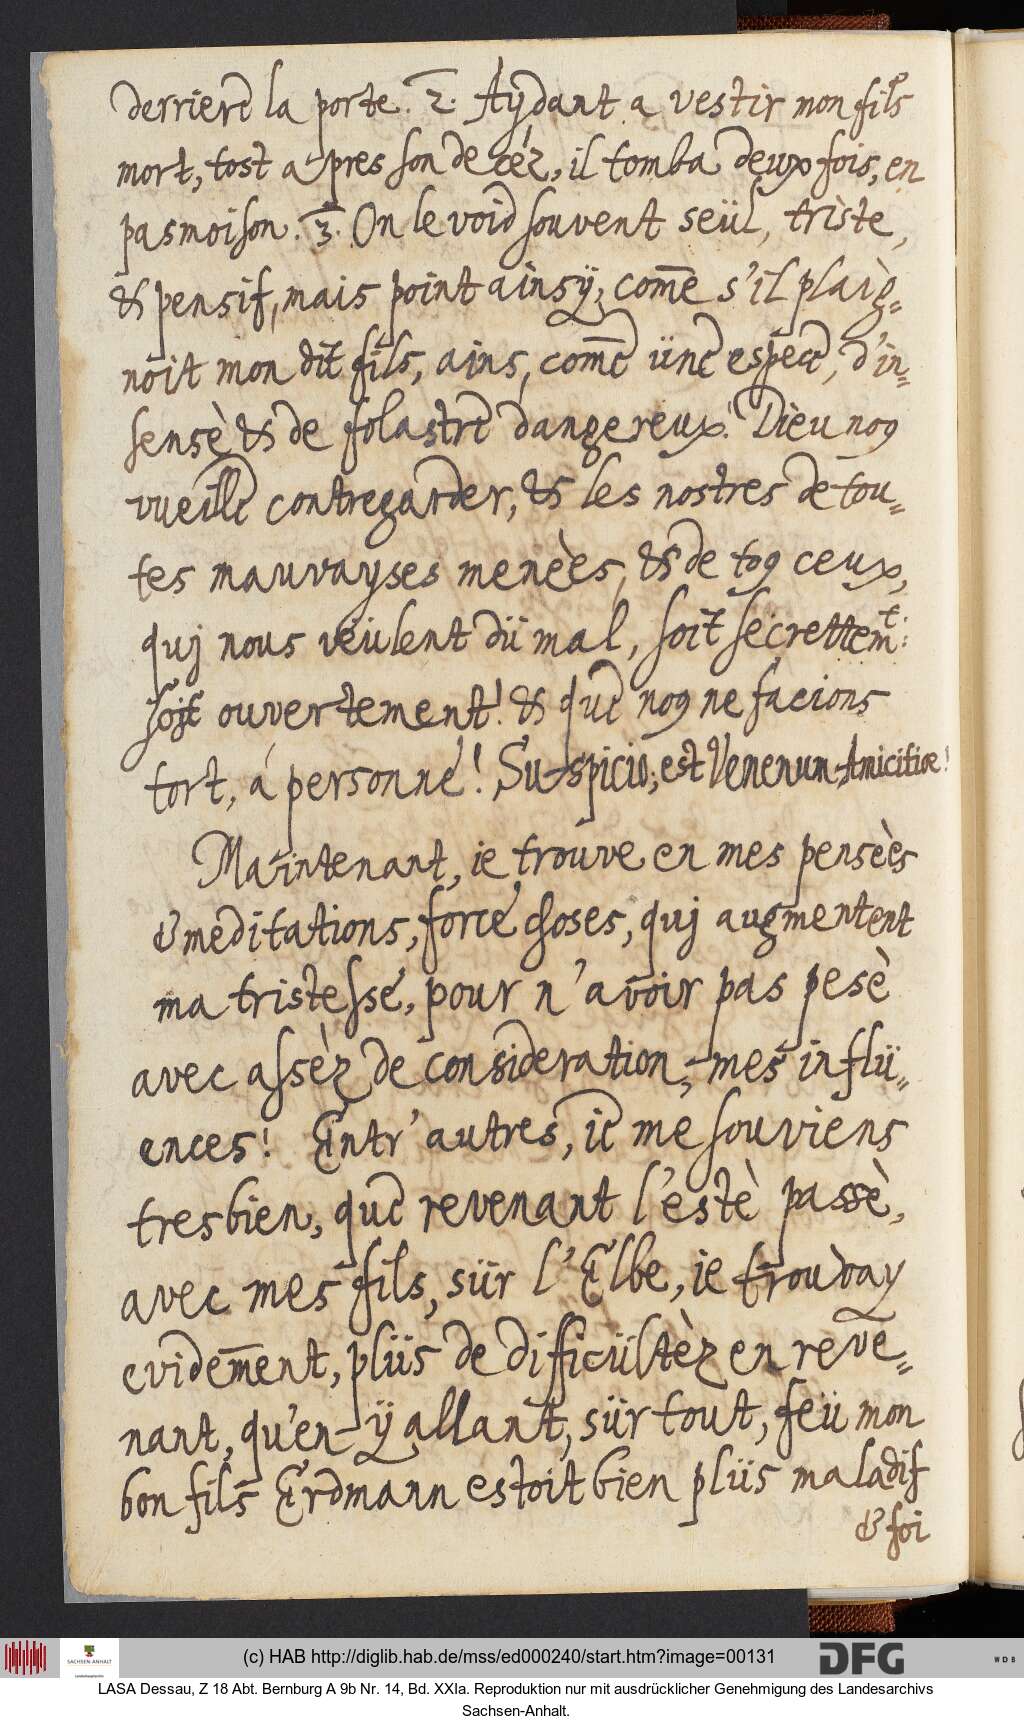 derriere la porte. 2. Aÿdant a vestir mon fils
mort, tost apres son decéz, il tomba deux fois, en
pasmoison. 3. On le void souvent seül, triste,
& pensif, mais point ainsÿ, com̄e s'il plaig=
noit mon dit fils, ains, com̄e üne espece, d'in=
sensè & de folastre dangereux! Dieu nog
vueille contregarder, & les nostres de tou=
tes mauvayses menèes, & de tog ceux,
quj nous veulent dü mal, soit secrettemt:
soit ouvertement! & que nog ne facions
tort, a personne! Suspicio, est Venenum Amicitiæ!
Maintenant, ie trouve en mes pensèes
& meditations, force choses, quj augmentent
ma tristesse, pour n'avoir pas pesè
avec assèz de consideration, mes inflü=
ences! Entr'autres, ie me souviens
tresbien, que revenant l'estè passè,
avec mes fils, sür l'Elbe, ie trouvay
evidem̄ent, plüs de difficültèz en reve=
nant, qu'en ÿ allant, sür tout, feü mon
bon fils Erdmann estoit bien plüs maladif
& foi
(c) HAB http://diglib.hab.de/mss/ed000240/start.htm?image=00131
SACHSEN-ANHALT
DFG
WDB
LASA Dessau, Z 18 Abt. Bernburg A 9b Nr. 14, Bd. XXIa. Reproduktion nur mit ausdrücklicher Genehmigung des Landesarchivs
Sachsen-Anhalt.